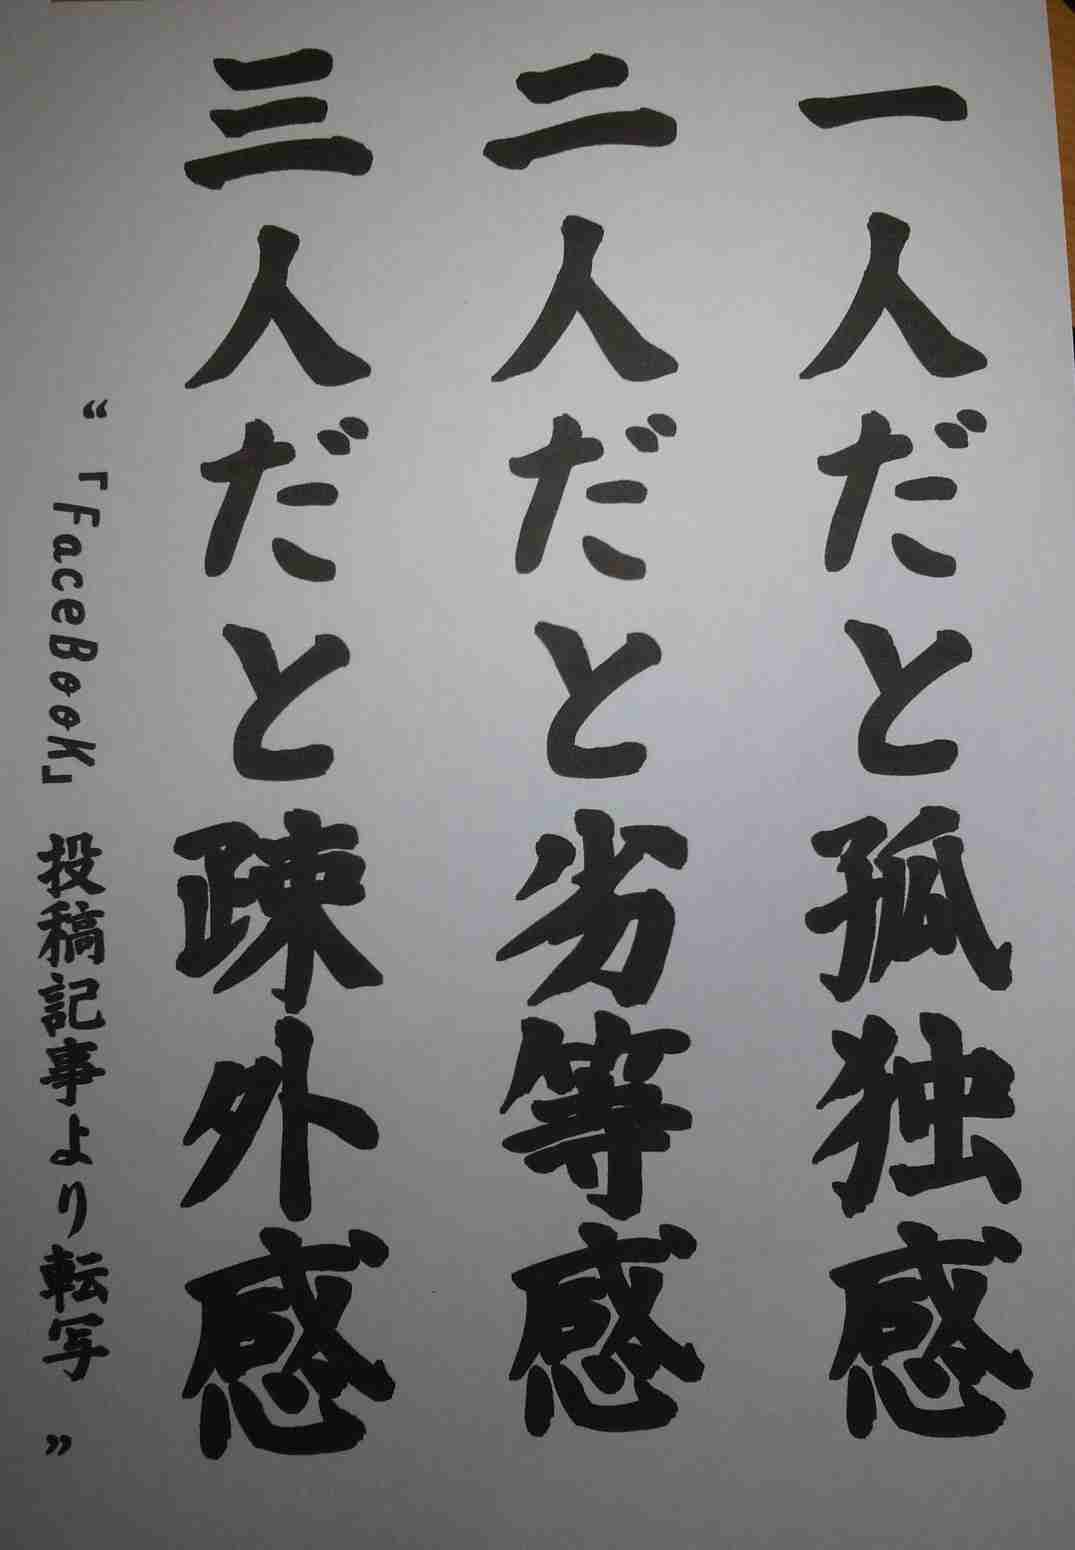 一人だと孤独感
二人だと劣等感
三人だと疎外感
“「FaceBooK」投稿記事より転写”